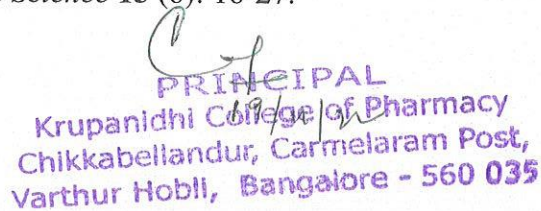 Science 13 (6): 16-27.
PRINCIPAL
Krupanidhi College of Pharmacy
Chikkabellandur, Carmelaram Post,
Varthur Hobli, Bangalore - 560 035